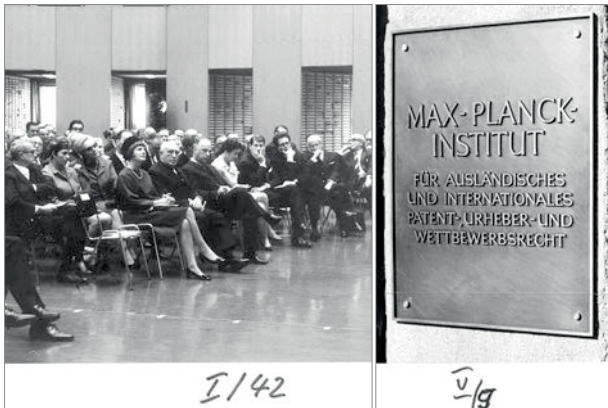 MAX-PLANCK-
INSTITUT
FÜR AUSLÄNDISCHES
UND INTERNATIONALES
PATENT-, URHEBER- UND
WETTBEWERBSRECHT
I/42
V/9